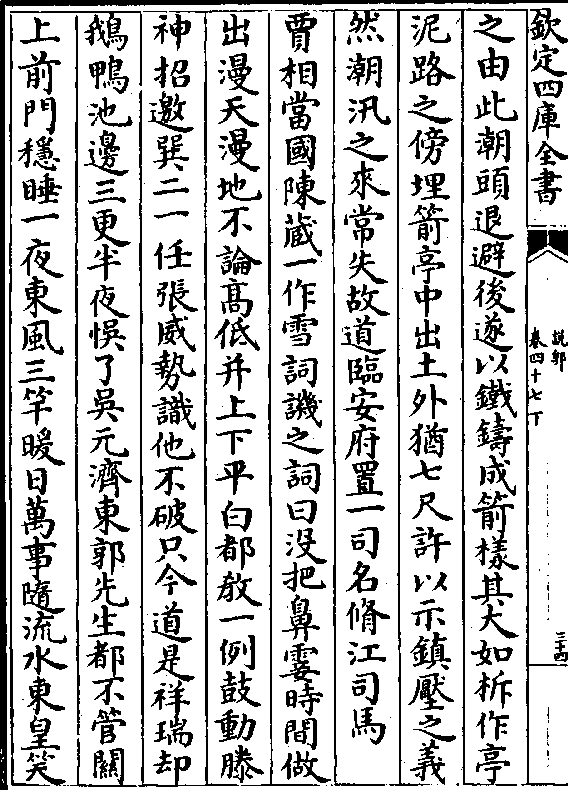 欽定四庫全書
說郛
卷四十七下
三十四
之由此潮頭退避後遂以鐵鑄成箭樣其大如柝作亭
泥路之傍埋箭亭中出土外猶七尺許以示鎮壓之義
然潮汛之來常失故道臨安府置一司名脩江司馬
賈相當國陳蔵一作雪詞譏之詞曰没把鼻霎時間做
出漫天漫地不論髙低并上下平白都教一例鼓動滕
神招邀巽二一任張威勢識他不破只今道是祥瑞却
鵝鴨池邊三更半夜悞了吳元濟東郭先生都不管關
上前門穩睡一夜東風三竿暖日萬事隨流水東皇笑